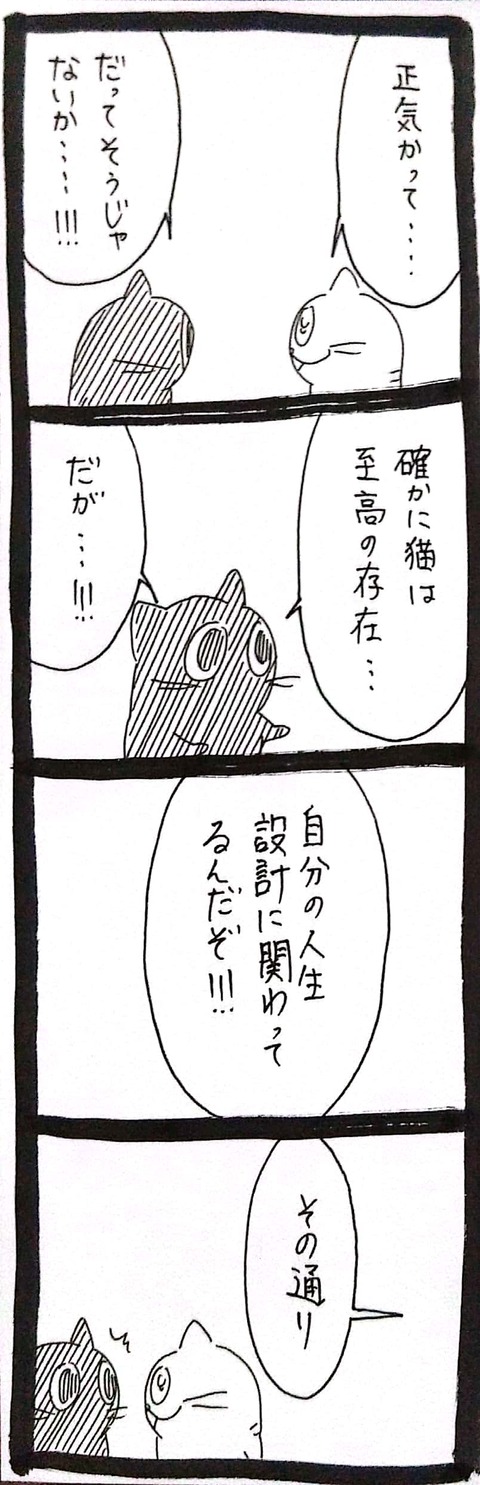 正気かって････
だってそうじゃ
ないか････!!!
確かに猫は
至高の存在…
だが…!!!
自分の人生
設計に関わって
るんだぞ!!!
その通り